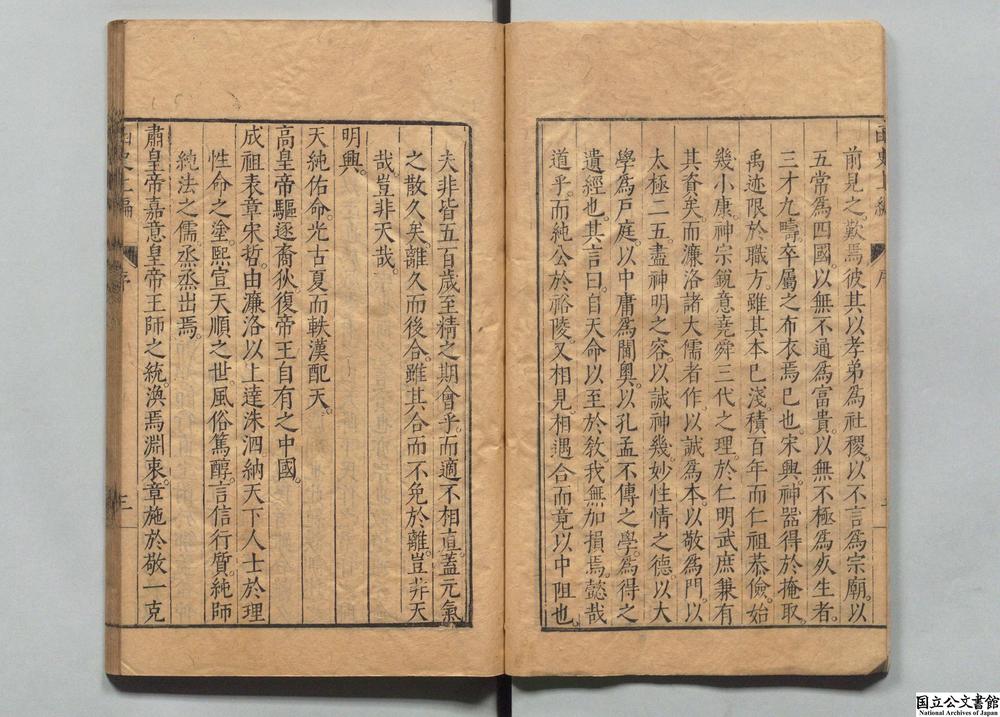 前見之歎焉彼其以孝弟為社稷。以不言為宗廟。以
五常為四國。以無不通為富貴。以無不極為久生者。
三才九疇。卒屬之布衣焉巳也。宋興。神器得於掩取。
禹迹限於職方。雖其本巳淺。積百年而仁祖恭儉。始
幾小康。神宗銳意堯舜三代之理。於仁明武庶兼有
其資矣。而濂洛諸大儒者作。以誠為本。以敬為門。以
太極二五。盡神明之容。以誠神幾妙性情之德。以大
學為戶庭。以中庸為閫奧。以孔孟不傳之學。為得之
遺經也。其言曰。自天命以至於教。我無加損焉。懿哉
道乎。而純公於裕陵又相見相遇合而竟以中阻也。
夫非皆五百歲至精之期會乎。而適不相直。蓋元氣
之散久矣。離久而後合。雖其合而不免於離。豈非天
哉。豈非天哉。
明興。
天純佑命。光古夏而軼漢配天。
高皇帝驅逐裔狄。復帝王自有之中國。
成祖表章宋哲。由濂洛以上達洙泗。納天下人士於理
性命之塗。熙宣天順之世。風俗篤醇。言信行質。純師
純法之儒。烝烝出焉。
肅皇帝嘉意皇帝王師之統。渙焉淵衷。章施於敬一克
函史上編
序
三
国立公文書館
National Archives of Japan